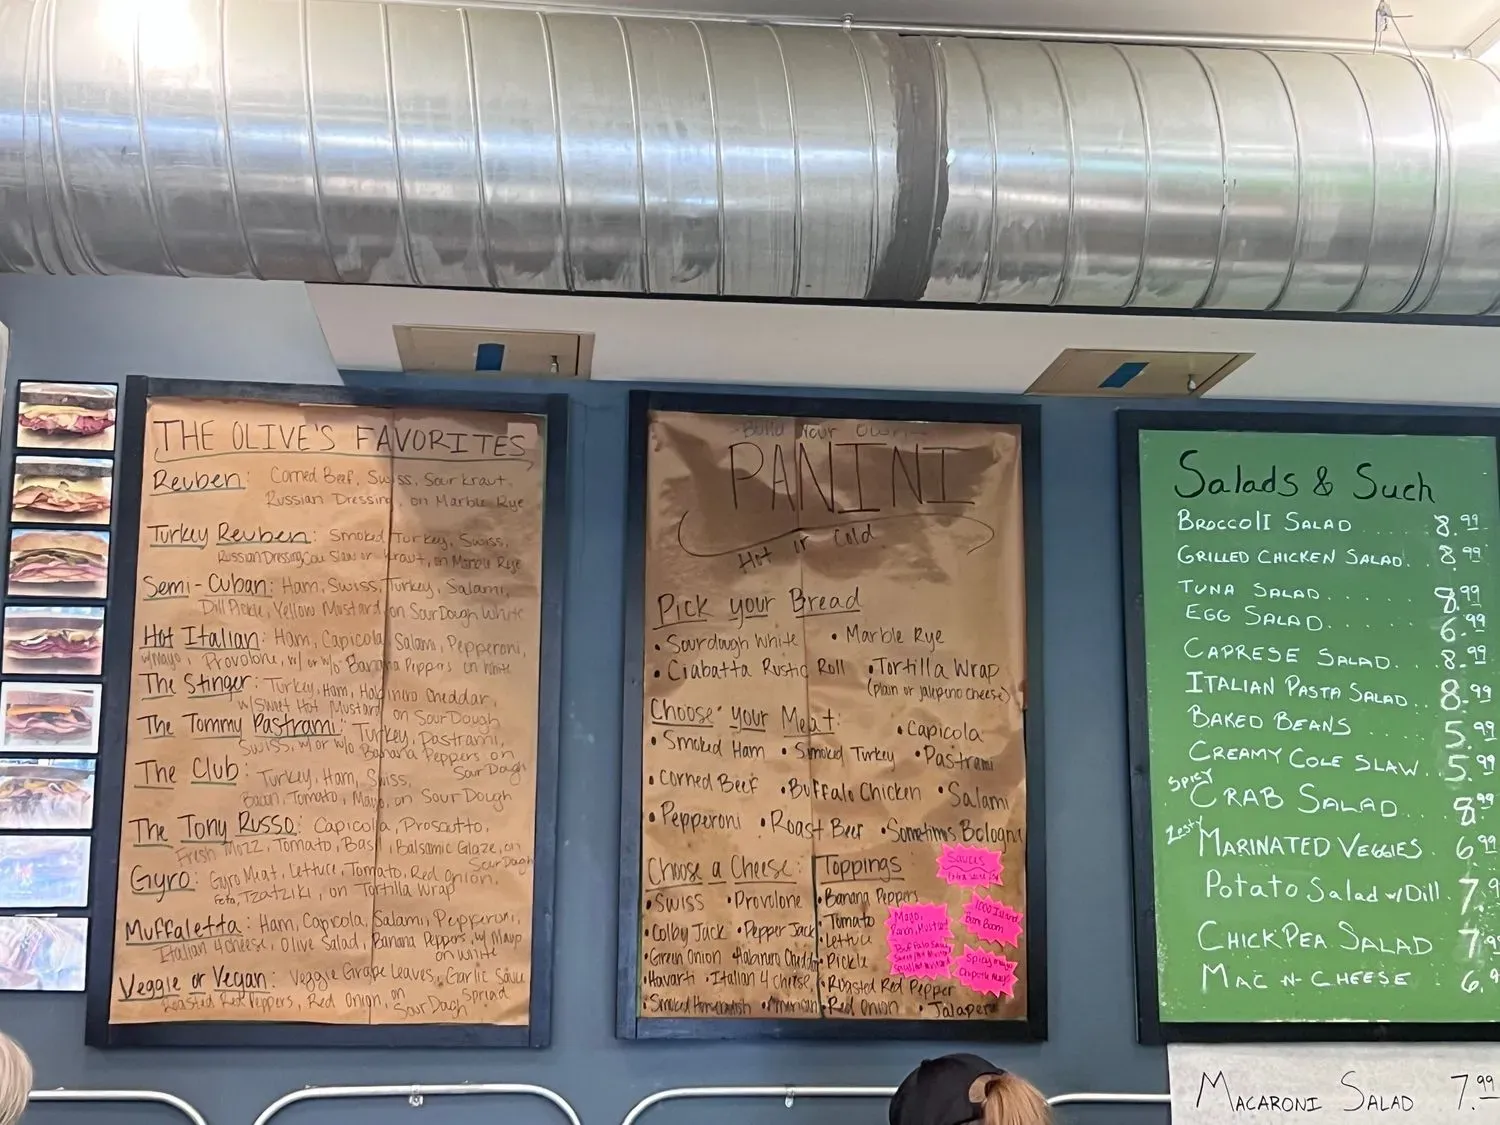 THE OLIVE'S FAVORITES
Reuben: Corned Beef, Swiss, Sour kraut,
Russian Dressing, on Marble Rye
Turkey Reuben: Smoked Turkey, Swiss,
Russian Dressing, Cole Slaw or kraut, on Marble Rye
Semi-Cuban: Ham, Swiss, Turkey, Salami,
Dill Pickle, Yellow Mustard on SourDough White
Hot Italian: Ham, Capicola, Salami, Pepperoni,
w/Mayo, Provolone, w/ or w/o Banana Peppers on White
The Stinger: Turkey, Ham, Habinero Cheddar,
w/Sweet Hot Mustard on SourDough
The Tommy Pastrami: Turkey, Pastrami,
Swiss, w/ or w/o Banana Peppers on
SourDough
The Club: Turkey, Ham, Swiss,
Bacon, Tomato, Mayo, on SourDough
The Tony Russo: Capicola, Proscutto,
Fresh Mozz, Tomato, Basil, Balsamic Glaze, on
SourDough
Gyro: Gyro Meat, Lettuce, Tomato, Red Onion,
Feta, Tzatziki, on Tortilla Wrap
Muffaletta: Ham, Capicola, Salami, Pepperoni,
Italian 4 cheese, Olive Salad, Banana Peppers, w/ Mayo
on White
Veggie or Vegan: Veggie Grape Leaves, Garlic Sauce
Roasted Red Peppers, Red Onion, on Spread
SourDough
Build Your Own
PANINI
Hot or Cold
Pick your Bread
• Sourdough White • Marble Rye
• Ciabatta Rustic Roll • Tortilla Wrap
(plain or jalepeno cheese)
Choose your Meat:
• Capicola
• Smoked Ham • Smoked Turkey • Pastrami
• Corned Beef • Buffalo Chicken • Salami
• Pepperoni • Roast Beef • Sometimes Bologna
Choose a Cheese:
• Swiss • Provolone
• Colby Jack • Pepper Jack
• Green Onion • Habanero Cheddar
• Havarti • Italian 4 cheese
• Smoked Horseradish • American
Toppings:
• Banana Peppers
• Tomato
• Lettuce
• Pickle
• Roasted Red Pepper
• Red Onion • Jalapeno
Sauces
Mayo,
Ranch, Mustard
Buffalo Sauce
1000 Island
Boom Boom
Spicy Mayo
Chipotle Mayo
Salads & Such
BROCCOLI SALAD ... 8.99
GRILLED CHICKEN SALAD.. 8.99
TUNA SALAD...... 8.99
EGG SALAD...... 6.99
CAPRESE SALAD... 8.99
ITALIAN PASTA SALAD.. 8.99
BAKED BEANS .... 5.99
CREAMY COLE SLAW.. 5.99
SPICY
CRAB SALAD .... 8.99
Zesty
MARINATED VEGGIES . 6.99
Potato Salad w/Dill . 7.99
CHICKPEA SALAD 7.99
MAC N- CHEESE 6.9
MACARONI SALAD 7.99